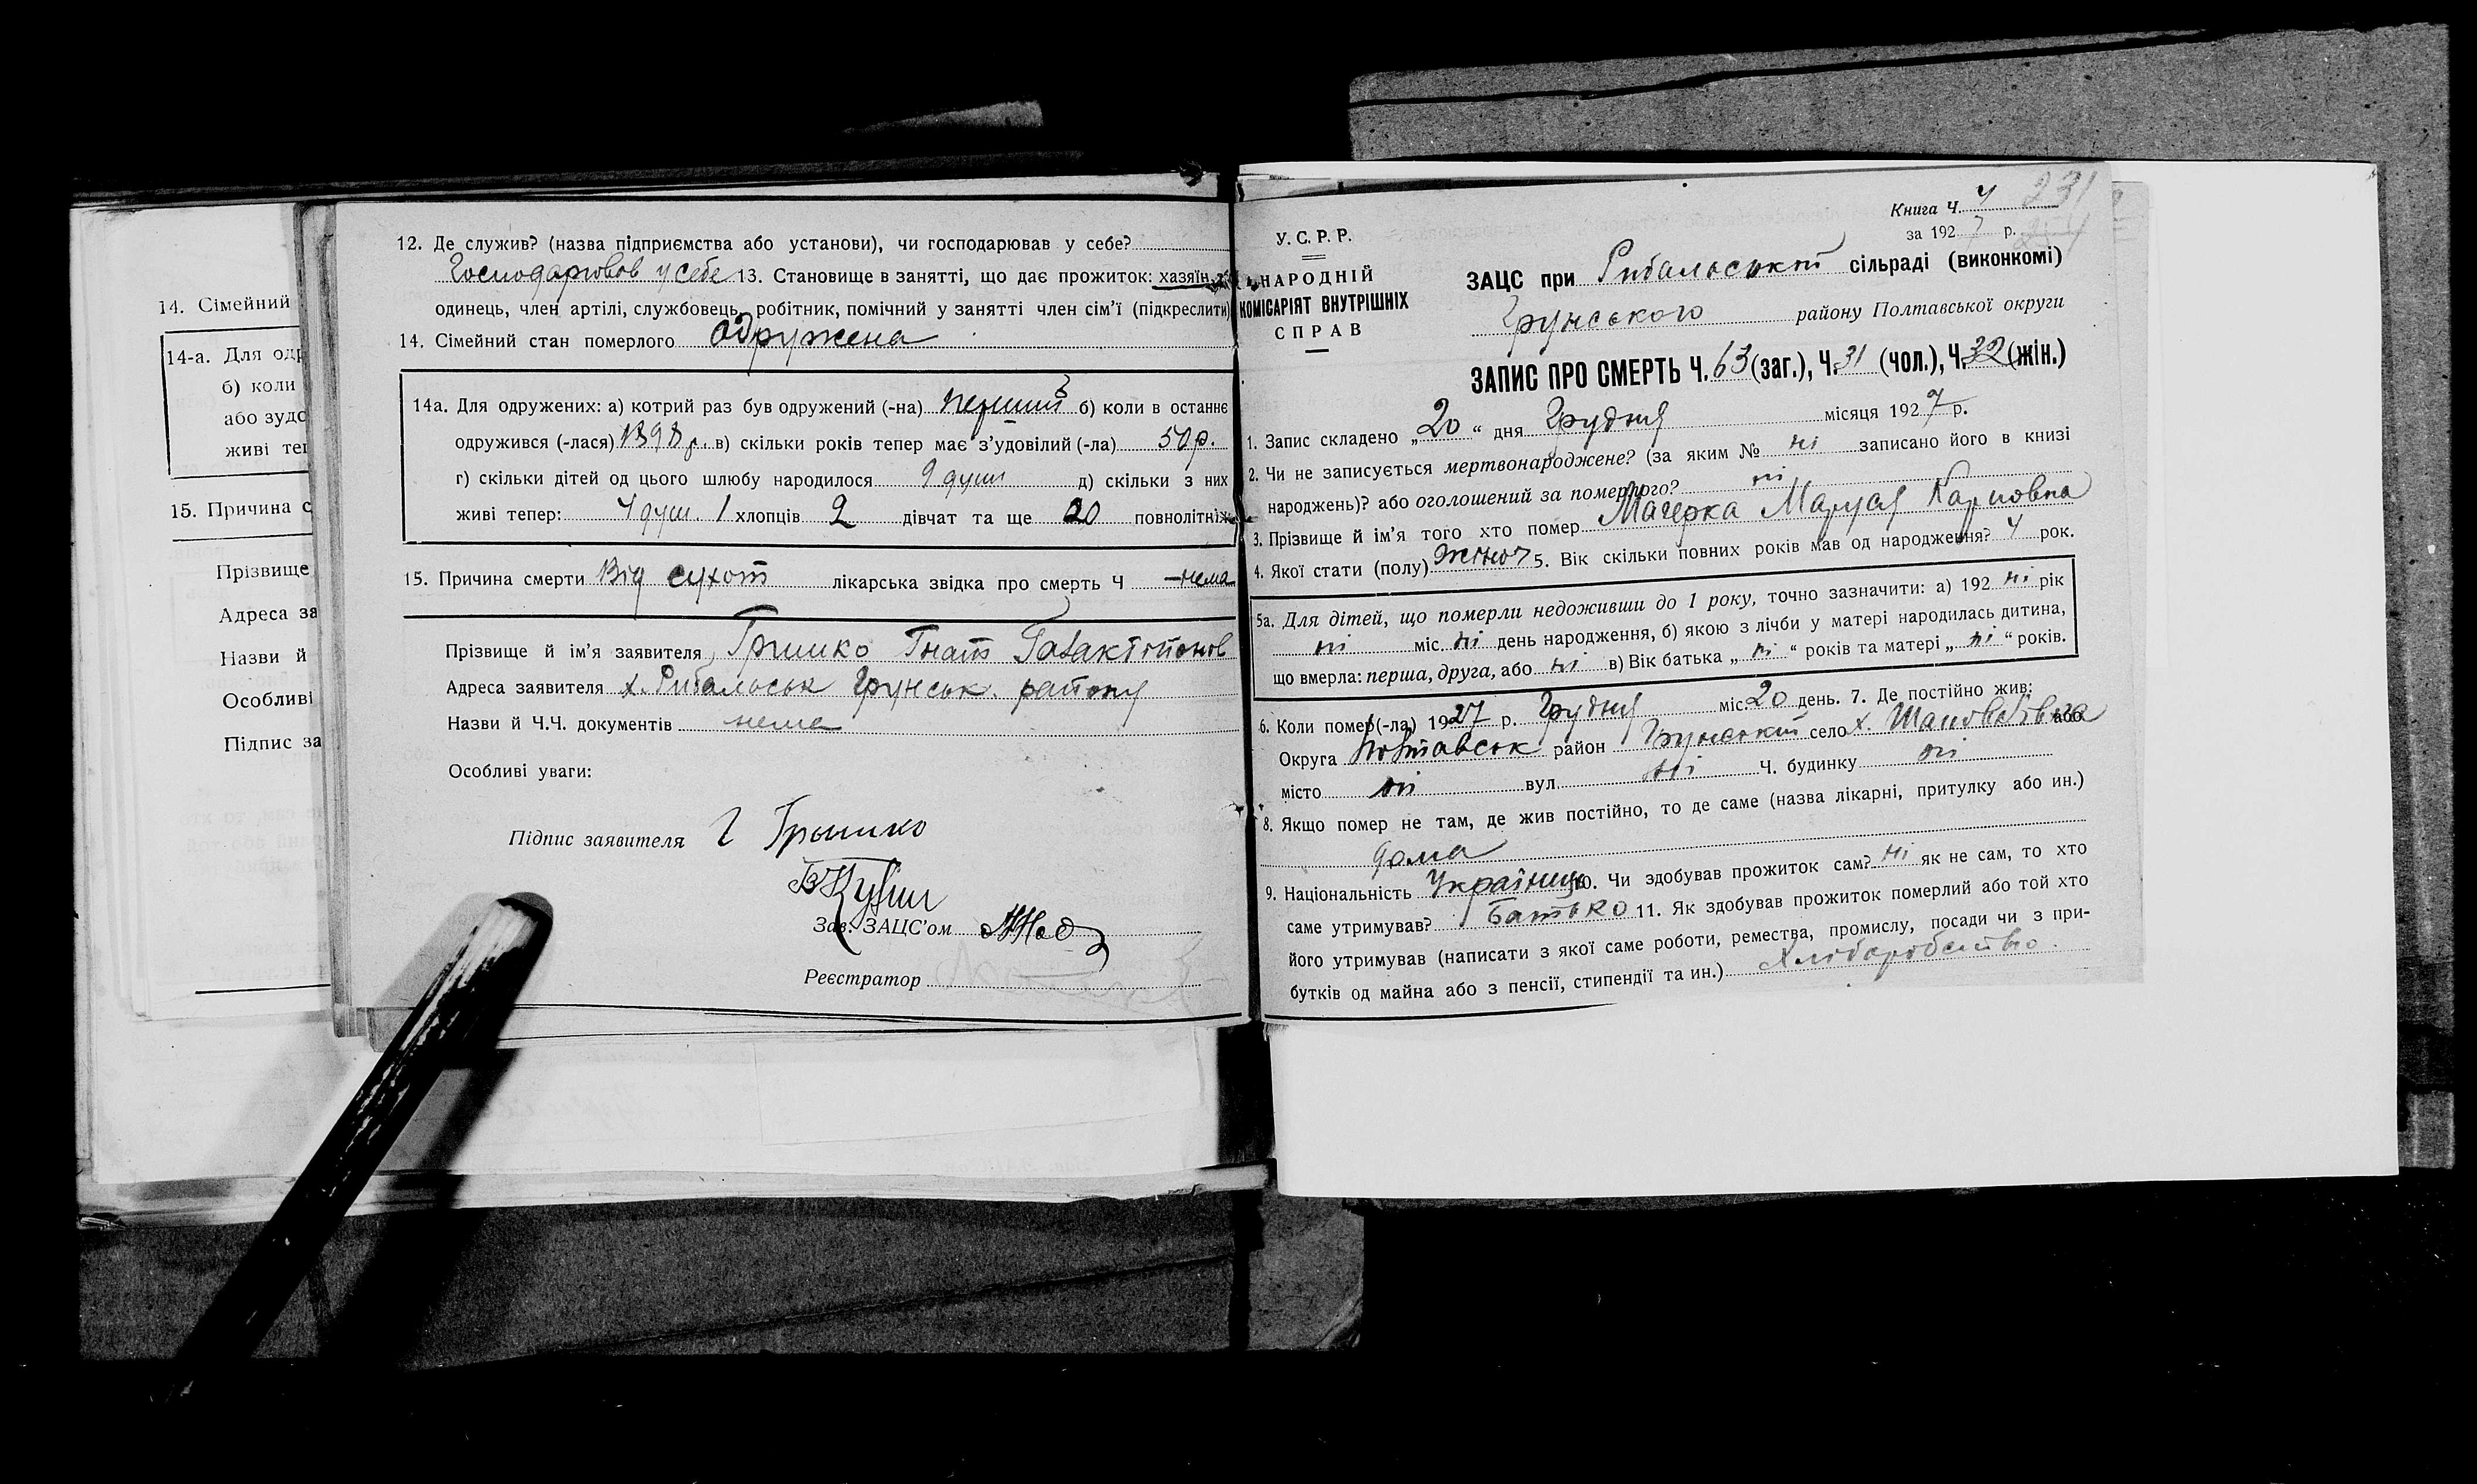 14. Сімейний
14-а. Для одр
б) коли
або зудо
живі теп
15. Причина с
Прізвище
Адреса за
Назви й
Особливі
Підпис за
12. Де служив? (назва підприємства або установи), чи господарював у себе?
Господарював у себе 13. Становище в занятті, що дає прожиток: хазяїн
одинець, член артілі, службовець, робітник, помічний у занятті член сім’ї (підкреслити)
14. Сімейний стан померлого одружена
14а. Для одружених: а) котрий раз був одружений (-на) перший б) коли в останнє
одружився (-лася) 1898 р. в) скільки років тепер має з’удовілий (-ла) 50 р.
г) скільки дітей од цього шлюбу народилося 9 душ д) скільки з них
живі тепер: 4 душ. 1 хлопців 2 дівчат та ще 20 повнолітніх
15. Причина смерти Від сухот лікарська звідка про смерть Ч —нема
Прізвище й ім’я заявителя Гришко Гнат
Адреса заявителя х. Рибальськ Грунськ. району
Назви й Ч.Ч. документів нема
Особливі уваги:
Підпис заявителя Г Грышко
Зав. ЗАЦС’ом
Реєстратор
Книга Ч. 4 231
за 1927 р.
У. С. Р. Р.
НАРОДНІЙ
КОМІСАРІЯТ ВНУТРІШНІХ
СПРАВ
ЗАЦС при Рибальській сільраді (виконкомі)
Грунського району Полтавської округи
ЗАПИС ПРО СМЕРТЬ Ч. 63 (заг.), Ч. 31 (чол.), Ч. 32 (жін.)
1. Запис складено „20“ дня Грудня місяця 1927 р.
2. Чи не записується мертвонароджене? (за яким № ні записано його в книзі
народжень)? або оголошений за померлого? ні
3. Прізвище й ім’я того хто помер Мачерка Маруся Карповна
4. Якої стати (полу) жіноч 5. Вік скільки повних років мав од народження? 4 рок.
5а. Для дітей, що померли недоживши до 1 року, точно зазначити: а) 192 ні рік
ні міс ні день народження, б) якою з лічби у матері народилась дитина,
що вмерла: перша, друга, або ні в) Вік батька „ні“ років та матері „ні“ років.
6. Коли помер(-ла) 1927 р. Грудня міс 20 день. 7. Де постійно жив:
Округа Полтавськ район Грунський село х. або
місто ні вул. ні Ч. будинку ні
8. Якщо помер не там, де жив постійно, то де саме (назва лікарні, притулку або ин.)
дома
9. Національність Українець 10. Чи здобував прожиток сам? ні як не сам, то хто
саме утримував? Батько 11. Як здобував прожиток померлий або той хто
його утримував (написати з якої саме роботи, ремества, промислу, посади чи з при-
бутків од майна або з пенсії, стипендії та ин.) Хліборобство.